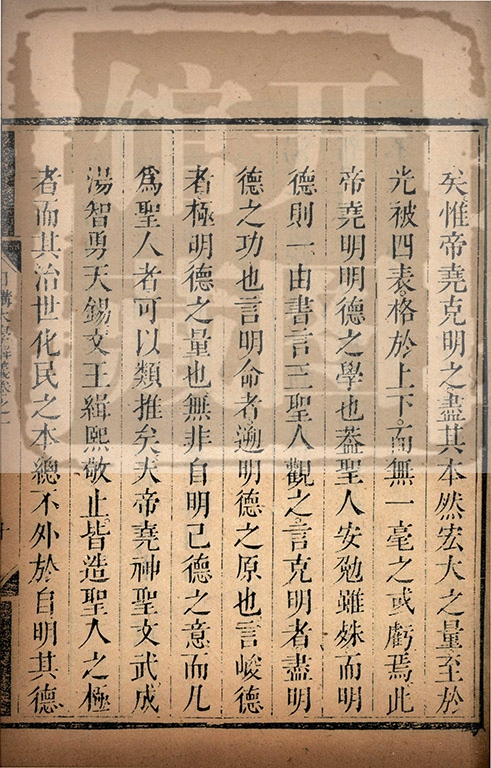 矣惟帝堯克明之盡其本然宏大之量至於
光被四表格於上下而無一毫之或虧焉此
帝堯明明德之學也蓋聖人安勉雖殊而明
德則一由書言三聖人觀之言克明者盡明
德之功也言明命者遡明德之原也言峻德
者極明德之量也無非自明己德之意而凡
為聖人者可以類推矣夫帝堯神聖文武成
湯智勇天錫文王緝熙敬止皆造聖人之極
者而其治世化民之本總不外於自明其德